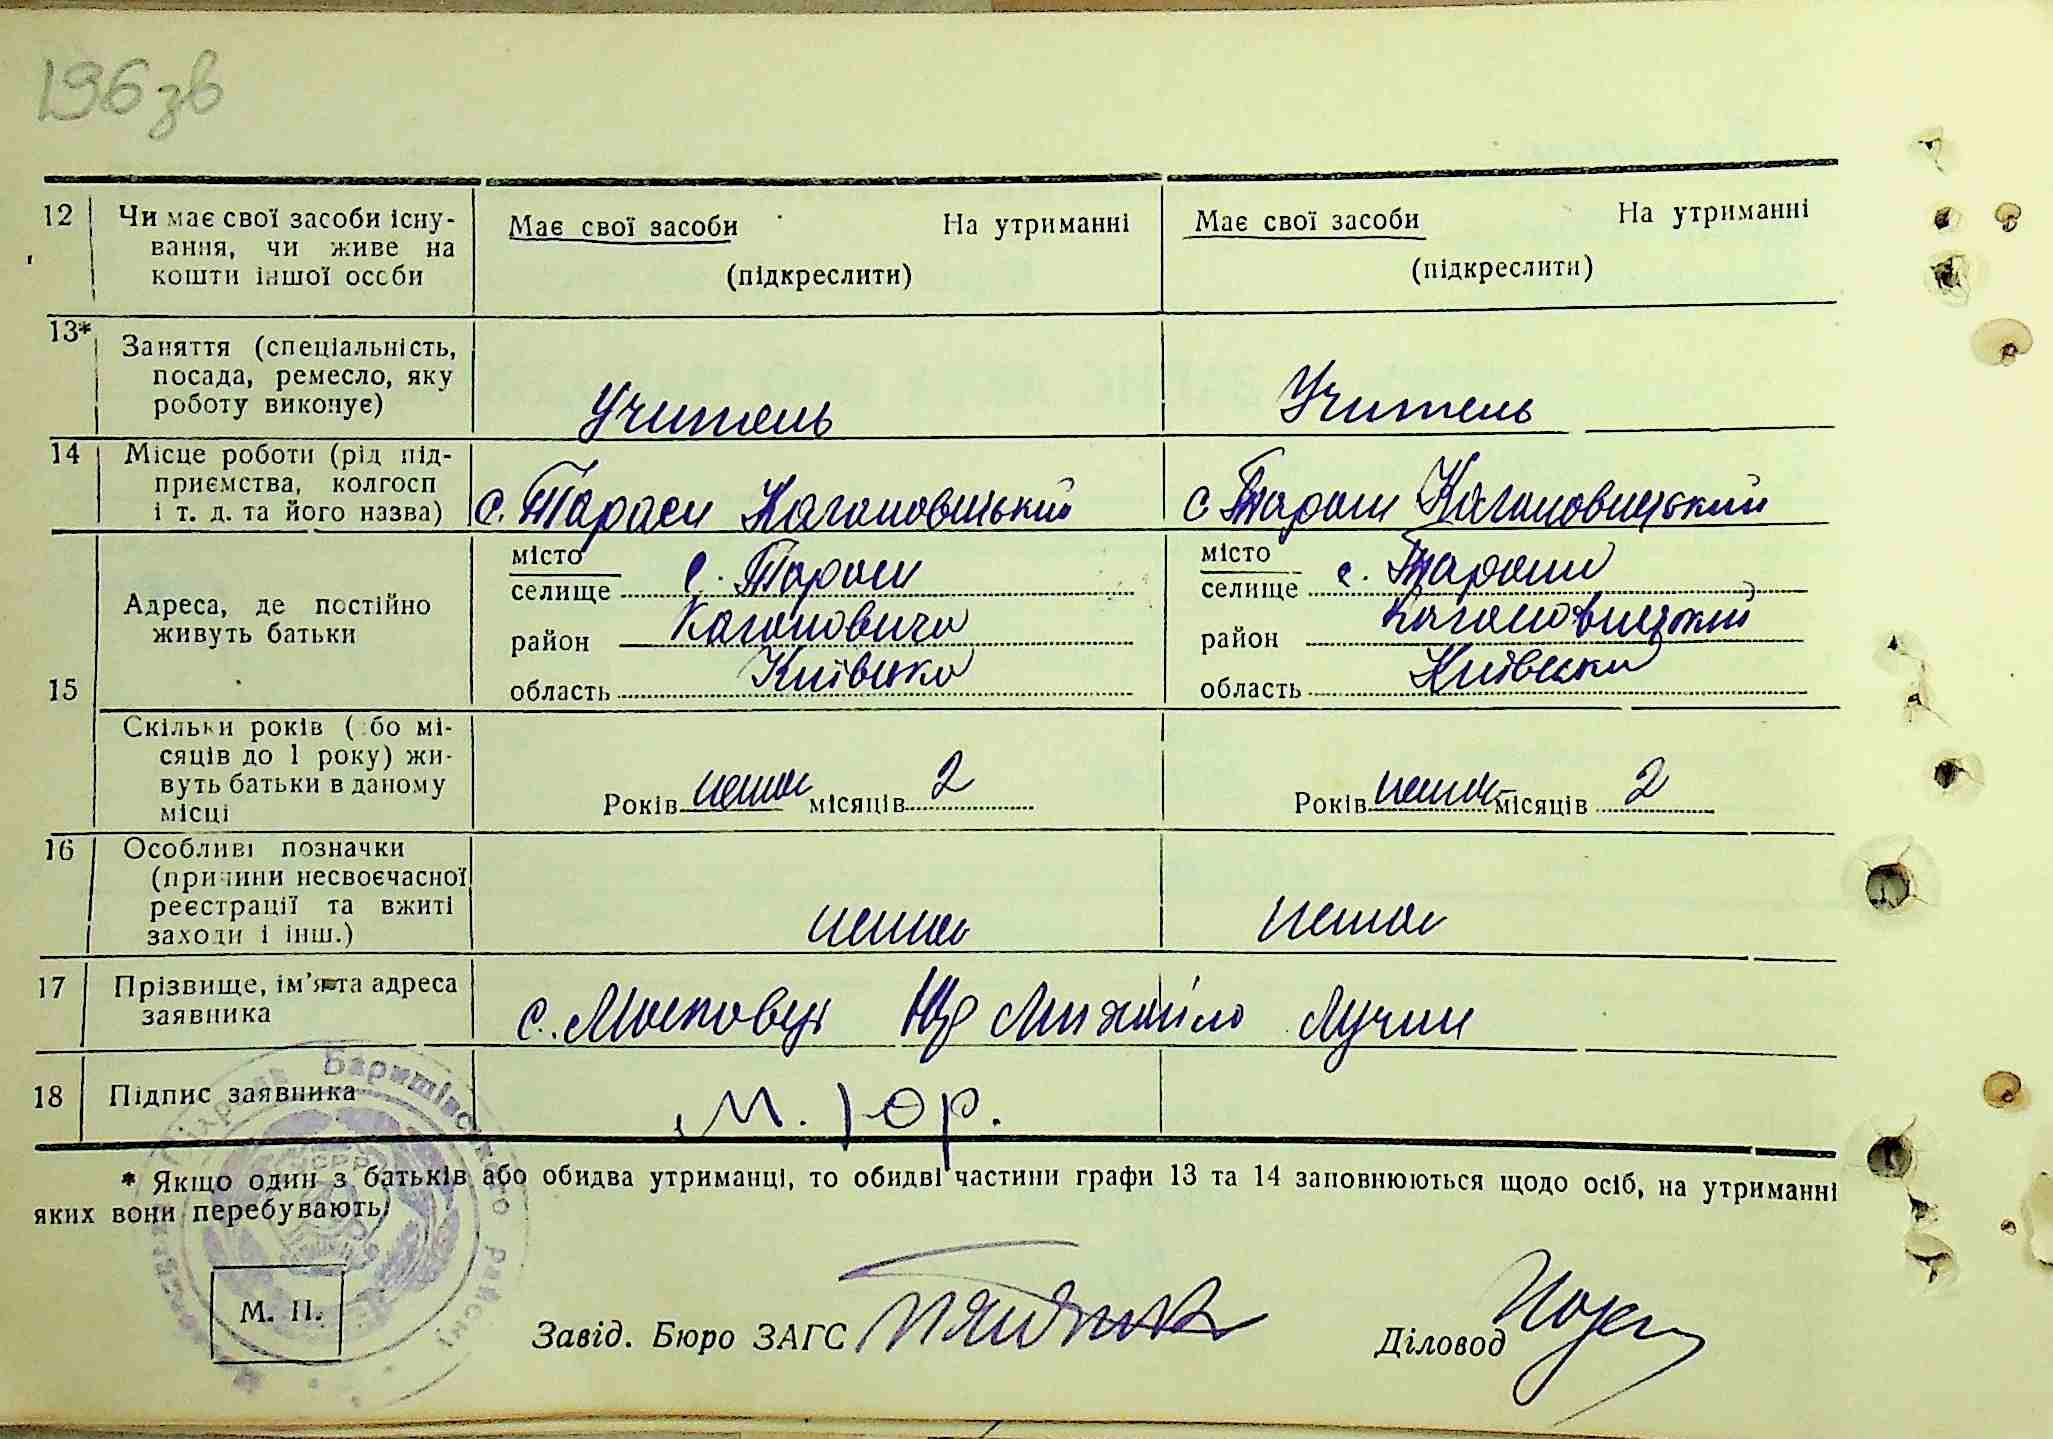 196 зв
12 Чи має свої засоби існу-
вання, чи живе на
кошти іншої особи
Має свої засоби На утриманні
(підкреслити)
Має свої засоби На утриманні
(підкреслити)
13* Заняття (спеціальність,
посада, ремесло, яку
роботу виконує)
Учитель
Учитель
14 Місце роботи (рід під-
приємства, колгосп
і т. д. та його назва)
с. Тараси Кагановицький
с Тараси Кагановицький
15 Адреса, де постійно
живуть батьки
місто
селище с. Тараси
район Кагановича
область Київська
місто
селище с. Тараси
район Кагановицький
область Київська
Скільки років (або мі-
сяців до 1 року) жи-
вуть батьки в даному
місці
Років нема місяців 2
Років нема місяців 2
16 Особливі позначки
(причини несвоєчасної
реєстрації та вжиті
заходи і інш.)
нема
нема
17 Прізвище, ім'я та адреса
заявника
с. Михайло
18 Підпис заявника
М. Юр.
* Якщо один з батьків або обидва утриманці, то обидві частини графи 13 та 14 заповнюються щодо осіб, на утриманні
яких вони перебувають.
Баришівського району
М. П.
Завід. Бюро ЗАГС
Діловод